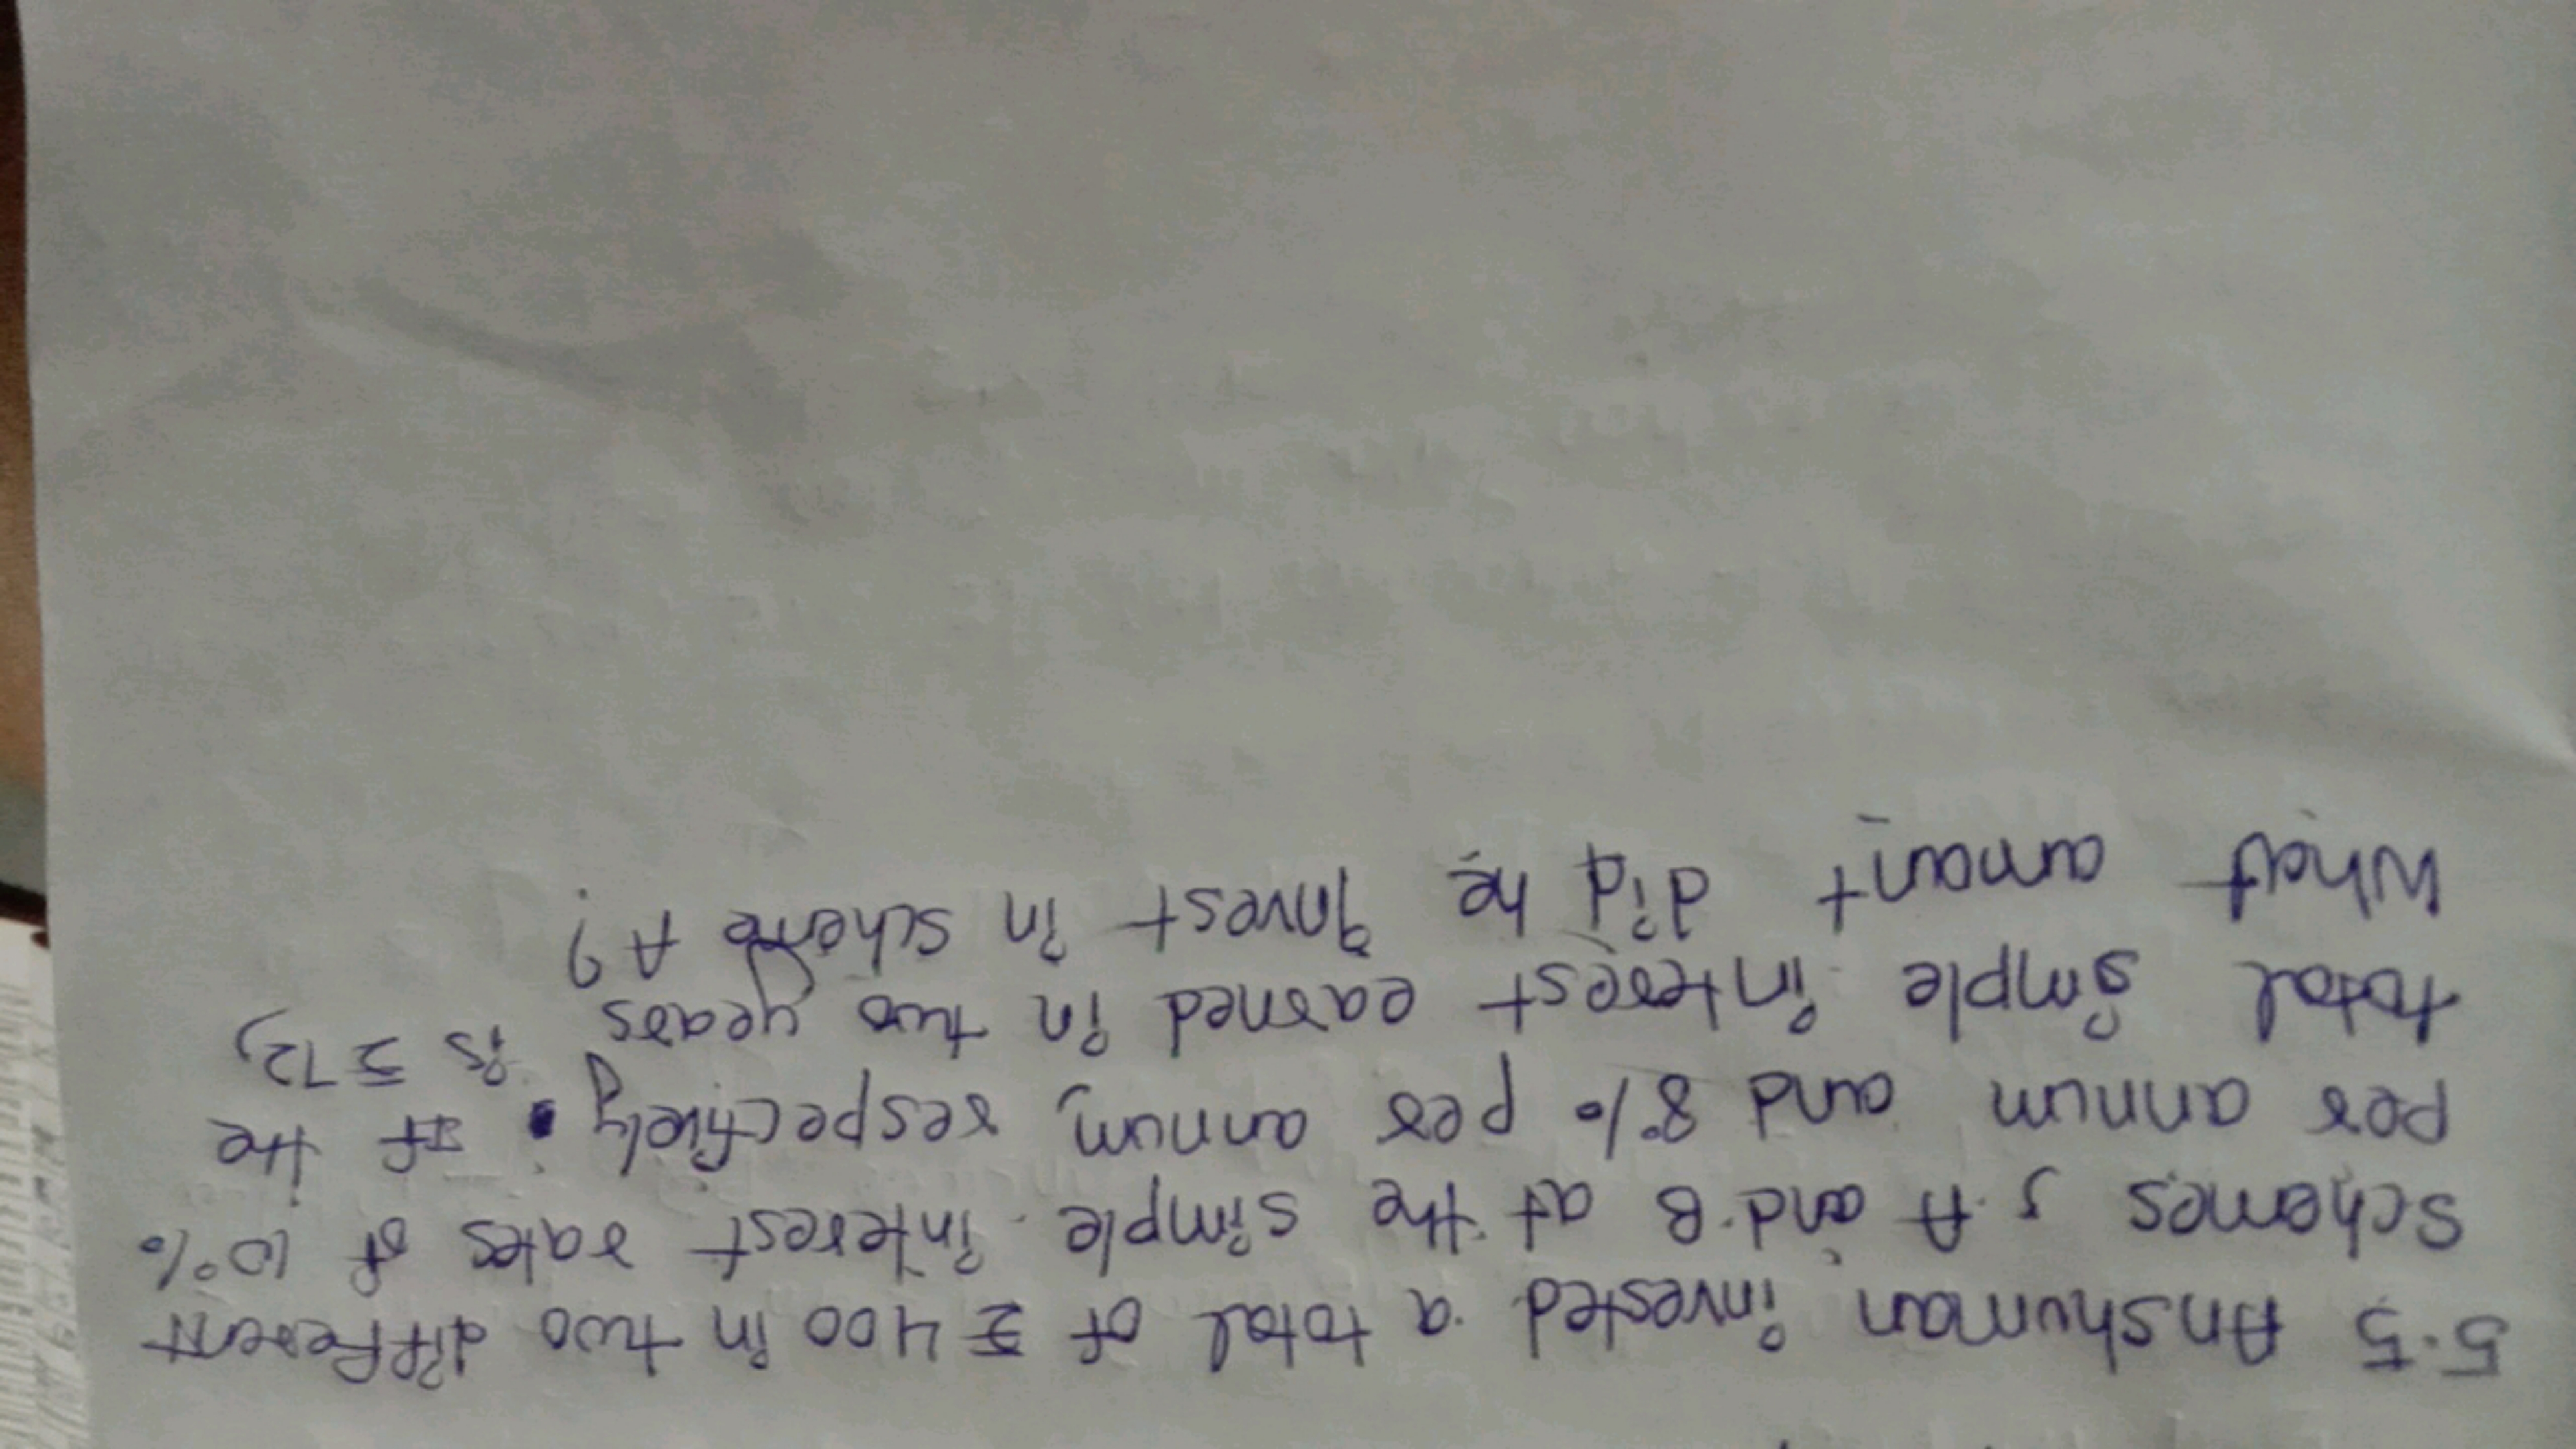 5.5 Anshuman invested a total of ₹ 400 in two different
schemes, A and B at the simple interest rates of 10%
per annum and 8% per annum, respectively. If the
total simple interest earned in two years is ₹ 72,
What amount did he invest in scheme A?